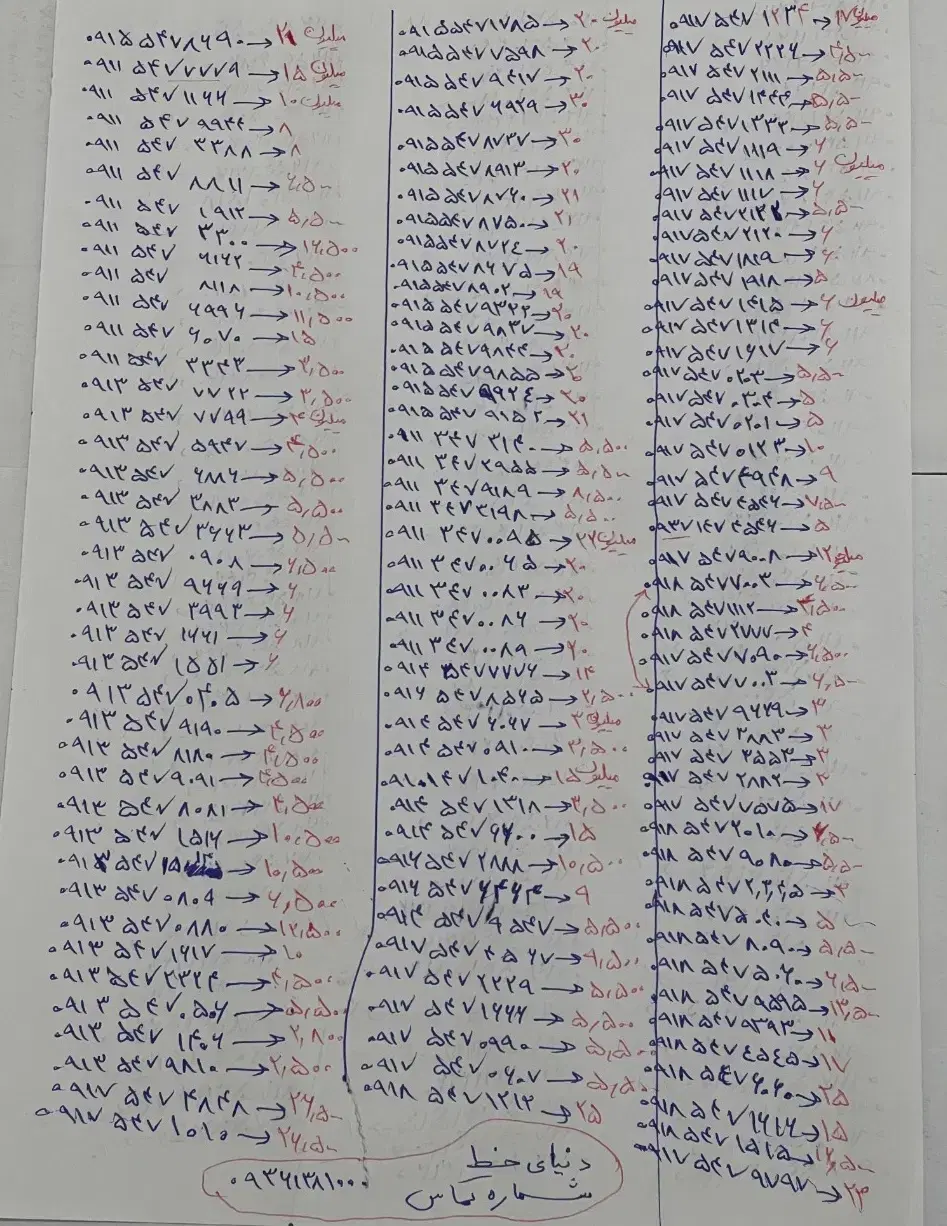 ۰۹۱۵ ۵۴۷۸۶۹۰ → ۲۱ میلیون
۰۹۱۱ ۵۴۷۷۷۷۹ → ۱۵ میلیون
۰۹۱۱ ۵۴۷ ۱۱۶۶ → ۱۰ میلیون
۰۹۱۱ ۵۴۷ ۹۹۴۴ → ۸
۰۹۱۱ ۵۴۷ ۳۳۸۸ → ۸
۰۹۱۱ ۵۴۷ ۸۸۱۱ → ۶,۵۰۰
۰۹۱۱ ۵۴۷ ۱۹۱۲ → ۵,۵۰۰
۰۹۱۱ ۵۴۷ ۳۳۰۰ → ۱۲,۵۰۰
۰۹۱۱ ۵۴۷ ۶۱۶۲ → ۴,۵۰۰
۰۹۱۱ ۵۴۷ ۸۱۱۸ → ۱۰,۵۰۰
۰۹۱۱ ۵۴۷ ۶۹۹۶ → ۱۱,۵۰۰
۰۹۱۱ ۵۴۷ ۶۰۷۰ → ۱۵
۰۹۱۱ ۵۴۷ ۳۳۴۳ → ۲,۵۰۰
۰۹۱۳ ۵۴۷ ۷۷۲۲ → ۳,۵۰۰
۰۹۱۳ ۵۴۷ ۷۷۹۹ → ۴ میلیون
۰۹۱۳ ۵۴۷ ۵۹۴۷ → ۴,۵۰۰
۰۹۱۳ ۵۴۷ ۶۸۸۶ → ۵,۵۰۰
۰۹۱۳ ۵۴۷ ۳۸۸۳ → ۵,۵۰۰
۰۹۱۳ ۵۴۷ ۳۶۶۳ → ۵,۵۰۰
۰۹۱۳ ۵۴۷ ۰۹۰۸ → ۶,۵۰۰
۰۹۱۳ ۵۴۷ ۹۶۶۹ → ۶
۰۹۱۳ ۵۴۷ ۲۹۹۲ → ۶
۰۹۱۳ ۵۴۷ ۱۶۶۱ → ۶
۰۹۱۳ ۵۴۷ ۱۵۵۱ → ۶
۰۹۱۳ ۵۴۷ ۰۴۰۵ → ۶,۸۰۰
۰۹۱۳ ۵۴۷ ۹۱۹۰ → ۴,۵۰۰
۰۹۱۳ ۵۴۷ ۸۱۸۰ → ۴,۵۰۰
۰۹۱۳ ۵۴۷ ۹۰۹۱ → ۴,۵۰۰
۰۹۱۳ ۵۴۷ ۸۰۸۱ → ۴,۵۰۰
۰۹۱۳ ۵۴۷ ۱۵۱۶ → ۱۰,۵۰۰
۰۹۱۳ ۵۴۷ → ۱۰,۵۰۰
۰۹۱۳ ۵۴۷ ۰۸۰۹ → ۶,۵۰۰
۰۹۱۳ ۵۴۷ ۰۸۸۰ → ۱۲,۵۰۰
۰۹۱۳ ۵۴۷ ۱۶۱۷ → ۱۰
۰۹۱۳ ۵۴۷ ۲۳۲۴ → ۴,۵۰۰
۰۹۱۳ ۵۴۷ ۰۵۰۶ → ۵,۵۰۰
۰۹۱۳ ۵۴۷ ۱۴۰۶ → ۲,۸۰۰
۰۹۱۳ ۵۴۷ ۹۸۱۰ → ۲,۵۰۰
۰۹۱۷ ۵۴۷ ۴۸۴۸ → ۲۶,۵۰۰
۰۹۱۷ ۵۴۷ ۱۰۱۰ → ۲۶,۵۰۰
۰۹۱۵ ۵۴۷۱۷۸۵ → ۲۰ میلیون
۰۹۱۵۵۴۷۷۵۹۸ → ۲۰
۰۹۱۵۵۴۷۹۴۱۷ → ۲۰
۰۹۱۵۵۴۷۶۹۲۹ → ۳۰
۰۹۱۵۵۴۷۸۷۳۷ → ۳۰
۰۹۱۵۵۴۷۸۹۱۳ → ۲۰
۰۹۱۵۵۴۷۸۷۶۰ → ۲۱
۰۹۱۵۵۴۷۸۷۵۰ → ۲۱
۰۹۱۵۵۴۷۸۷۲۴ → ۲۰
۰۹۱۵۵۴۷۸۶۷۵ → ۱۹
۰۹۱۵۵۴۷۸۹۰۲ → ۱۹
۰۹۱۵۵۴۷۹۳۲۲ → ۲۰
۰۹۱۵۵۴۷۹۸۳۷ → ۲۰
۰۹۱۵۵۴۷۹۸۴۴ → ۲۰
۰۹۱۵۵۴۷۹۸۵۵ → ۲۰
۰۹۱۵۵۴۷۹۹۲۴ → ۲۰
۰۹۱۵۵۴۷ ۹۱۵۲ → ۲۱
۰۹۱۱ ۳۴۷ ۳۱۴۰ → ۵,۵۰۰
۰۹۱۱ ۳۴۷ ۲۹۵۵ → ۵,۵۰۰
۰۹۱۱ ۳۴۷ ۹۱۸۹ → ۸,۵۰۰
۰۹۱۱ ۳۴۷ ۳۱۹۸ → ۵,۵۰۰
۰۹۱۱ ۳۴۷ ۰۰۹۵ → ۲۲ میلیون
۰۹۱۱ ۳۴۷ ۰۰۶۵ → ۲۰
۰۹۱۱ ۳۴۷ ۰۰۸۳ → ۲۰
۰۹۱۱ ۳۴۷ ۰۰۸۶ → ۲۰
۰۹۱۱ ۳۴۷ ۰۰۸۹ → ۲۰
۰۹۱۴ ۵۴۷۷۷۷۶ → ۱۴
۰۹۱۶ ۵۴۷۸۵۶۵ → ۲,۵۰۰
۰۹۱۴ ۵۴۷ ۶۰۶۷ → ۳ میلیون
۰۹۱۴ ۵۴۷ ۰۹۱۰ → ۳,۵۰۰
۰۹۱۰۱۴۷۱۰۴۰ → ۱۵ میلیون
۰۹۱۴ ۵۴۷ ۱۳۱۸ → ۳,۵۰۰
۰۹۱۴ ۵۴۷ ۹۶۰۰ → ۱۵
۰۹۱۶ ۵۴۷ ۲۸۸۸ → ۱۰,۵۰۰
۰۹۱۶ ۵۴۷ ۶۴۶۴ → ۹
۰۹۱۴ ۵۴۷ ۹۵۴۷ → ۵,۵۰۰
۰۹۱۷ ۵۴۷ ۴۵۶۷ → ۹,۵۰۰
۰۹۱۷ ۵۴۷ ۲۲۲۹ → ۵,۵۰۰
۰۹۱۷ ۵۴۷ ۱۶۶۶ → ۵,۵۰۰
۰۹۱۷ ۵۴۷ ۰۹۹۰ → ۵,۵۰۰
۰۹۱۷ ۵۴۷ ۰۶۰۷ → ۵,۵۰۰
۰۹۱۸ ۵۴۷ ۱۲۱۲ → ۲۵
۰۹۱۷ ۵۴۷ ۱۲۳۴ → ۱۷ میلیون
۰۹۱۷ ۵۴۷ ۲۲۲۶ → ۴,۵۰۰
۰۹۱۷ ۵۴۷ ۲۱۱۱ → ۵,۵۰۰
۰۹۱۷ ۵۴۷ ۱۴۴۴ → ۵,۵۰۰
۰۹۱۷ ۵۴۷ ۱۲۳۲ → ۵,۵۰۰
۰۹۱۷ ۵۴۷ ۱۱۱۹ → ۶
۰۹۱۷ ۵۴۷ ۱۱۱۸ → ۶ میلیون
۰۹۱۷ ۵۴۷ ۱۱۱۷ → ۶
۰۹۱۷ ۵۴۷ ۲۱۲۲ → ۵,۵۰۰
۰۹۱۷ ۵۴۷ ۲۱۲۰ → ۶
۰۹۱۷ ۵۴۷ ۱۸۱۹ → ۶
۰۹۱۷ ۵۴۷ ۱۹۱۸ → ۵
۰۹۱۷ ۵۴۷ ۱۴۱۵ → ۶ میلیون
۰۹۱۷ ۵۴۷ ۱۳۱۴ → ۶
۰۹۱۷ ۵۴۷ ۱۶۱۷ → ۶
۰۹۱۷ ۵۴۷ ۰۲۰۳ → ۵,۵۰۰
۰۹۱۷ ۵۴۷ ۰۳۰۴ → ۵
۰۹۱۷ ۵۴۷ ۰۲۰۱ → ۵
۰۹۱۷ ۵۴۷ ۰۱۲۳ → ۱۰
۰۹۱۷ ۵۴۷ ۴۹۴۸ → ۹
۰۹۱۷ ۵۴۷ ۴۵۴۶ → ۷,۵۰۰
۰۹۳۷ ۱۴۷ ۴۵۴۶ → ۵
۰۹۱۷ ۵۴۷ ۹۰۰۸ → ۱۲ میلیون
۰۹۱۸ ۵۴۷ ۷۰۰۳ → ۶,۵۰۰
۰۹۱۸ ۵۴۷ ۱۱۱۲ → ۳,۵۰۰
۰۹۱۸ ۵۴۷ ۲۷۷۷ → ۴
۰۹۱۷ ۵۴۷ ۷۰۹۰ → ۶,۵۰۰
۰۹۱۷ ۵۴۷ ۷۰۰۳ → ۶,۵۰۰
۰۹۱۷ ۵۴۷ ۹۶۶۹ → ۳
۰۹۱۷ ۵۴۷ ۳۸۸۳ → ۳
۰۹۱۷ ۵۴۷ ۳۵۵۳ → ۳
۰۹۱۷ ۵۴۷ ۲۸۸۲ → ۳
۰۹۱۷ ۵۴۷ ۷۵۷۵ → ۱۷
۰۹۱۸ ۵۴۷ ۲۰۱۰ → ۴,۵۰۰
۰۹۱۸ ۵۴۷ ۹۰۸۰ → ۵,۵۰۰
۰۹۱۸ ۵۴۷ ۲,۲,۴,۵ → ۳
۰۹۱۸ ۵۴۷ ۵۰۴۰ → ۵
۰۹۱۸ ۵۴۷ ۸۰۹۰ → ۵,۵۰۰
۰۹۱۸ ۵۴۷ ۵۰۶۰ → ۶,۵۰۰
۰۹۱۸ ۵۴۷ ۹۵۹۵ → ۱۳,۵۰۰
۰۹۱۸ ۵۴۷ ۹۳۹۳ → ۱۱
۰۹۱۸ ۵۴۷ ۴۵۴۵ → ۱۷
۰۹۱۸ ۵۴۷ ۶۰۶۰ → ۲۵
۰۹۱۸ ۵۴۷ ۱۶۱۶ → ۱۵
۰۹۱۸ ۵۴۷ ۱۵۱۵ → ۱۶,۵۰۰
۰۹۱۷ ۵۴۷ ۹۷۹۷ → ۲۳
دنیای خط
شماره تماس
۰۹۳۶۱۳۸۱۰۰۰